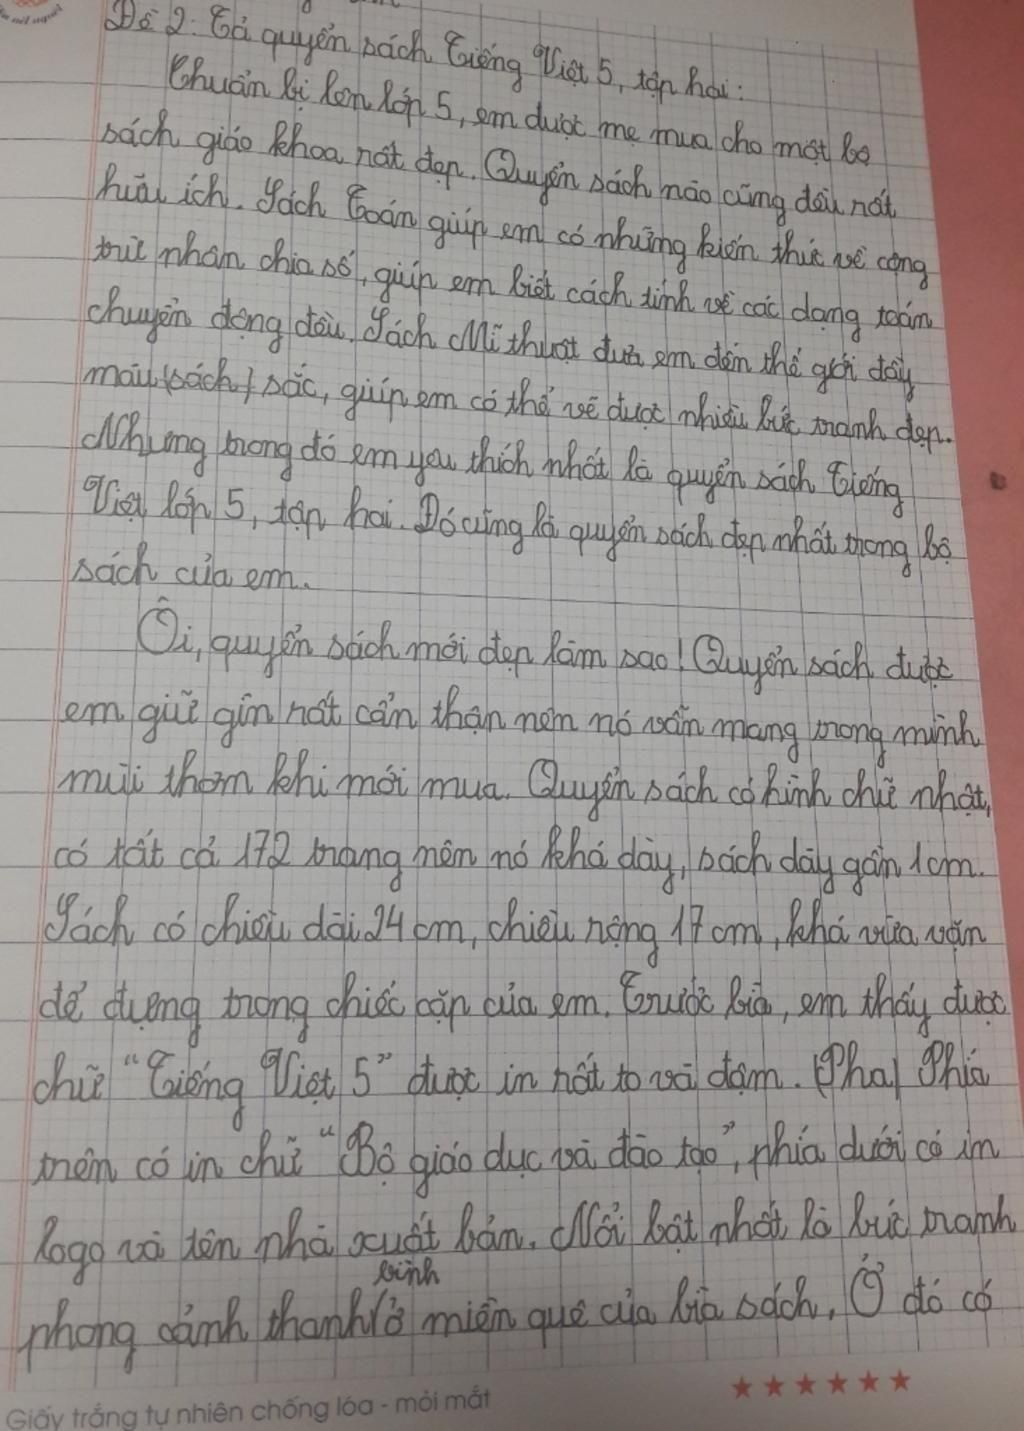 Đề 2: Tả quyển sách Tiếng Việt 5, tập hai:
Chuẩn bị lên lớp 5, em được mẹ mua cho một bộ
sách giáo khoa rất đẹp. Quyển sách nào cũng đều rất
hữu ích. Sách Toán giúp em có những kiến thức về cộng
trừ nhân chia số, giúp em biết cách tính về các dạng toán
chuyển động đều. Sách Mĩ thuật đưa em đến thế giới đầy
màu (sách) sắc, giúp em có thể vẽ được nhiều bức tranh đẹp.
Nhưng trong đó em yêu thích nhất là quyển sách Tiếng
Việt lớp 5, tập hai. Đó cũng là quyển sách đẹp nhất trong bộ
sách của em.
Ôi, quyển sách mới đẹp làm sao! Quyển sách được
em giữ gìn rất cẩn thận nên nó vẫn mang trong mình
mùi thơm khi mới mua. Quyển sách có hình chữ nhật,
có tất cả 172 trang nên nó khá dày, sách dày gần 1cm.
Sách có chiều dài 24 cm, chiều rộng 17 cm, khá vừa vặn
để đựng trong chiếc cặp của em. Trước bìa, em thấy được
chữ "Tiếng Việt 5" được in rất to và đậm. (Pha) Phía
trên có in chữ "Bộ giáo dục và đào tạo", phía dưới có in
logo và tên nhà xuất bản. Nổi bật nhất là bức tranh
phong cảnh thanh bình ở miền quê của bìa sách. Ở đó có
Giấy trắng tự nhiên chống lóa - mỏi mắt